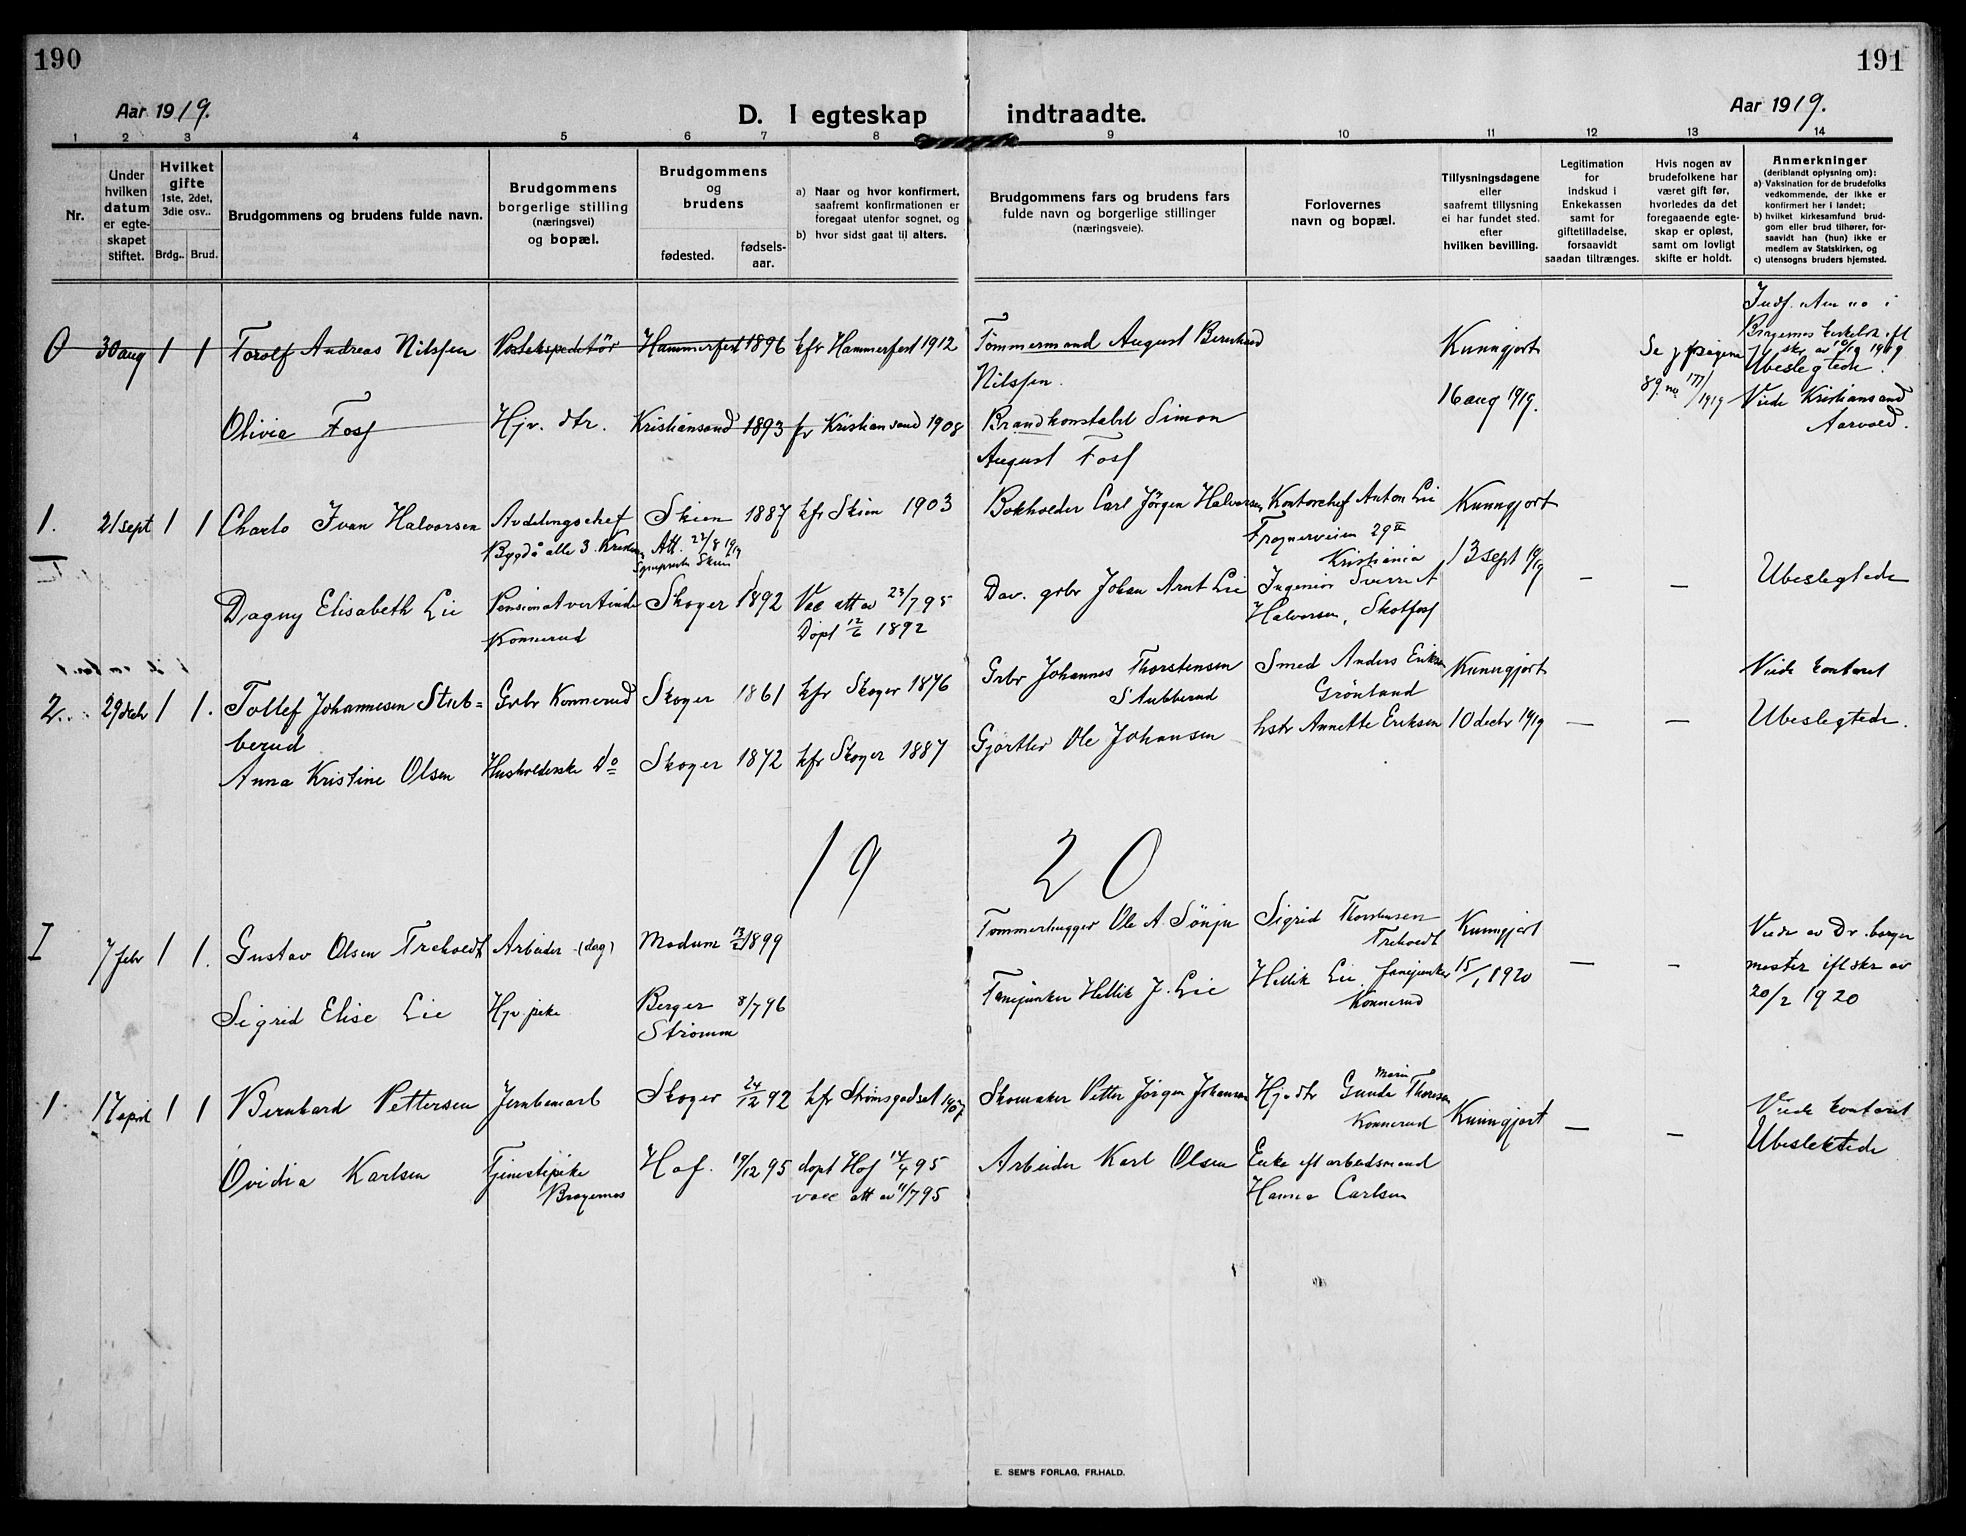 190
191
Aar 1919.
D. I egteskap indtraadte.
Aar 1919.
1 2 3 4 5 6 7 8 9 10 11 12 13 14
Nr.
Under hvilken datum er egteskapet stiftet.
Hvilket gifte 1ste, 2det, 3die osv..
Brdg.. Brud.
Brudgommens og brudens fulde navn.
Brudgommens borgerlige stilling (næringsvei) og bopæl.
Brudgommens og brudens
fødested.
fødsels-aar.
a) Naar og hvor konfirmert, saafremt konfirmationen er foregaat utenfor sognet, og
b) hvor sidst gaat til alters.
Brudgommens fars og brudens fars fulde navn og borgerlige stillinger (næringsveie).
Forlovernes navn og bopæl.
Tillysningsdagene eller saafremt tillysning ei har fundet sted. efter hvilken bevilling.
Legitimation for indskud i Enkekassen samt for giftetilladelse, forsaavidt saadan tiltrænges.
Hvis nogen av brudefolkene har været gift før, hvorledes da det foregaaende egteskap er opløst, samt om lovligt skifte er holdt.
Anmerkninger (deriblandt oplysning om):
a) Vaksination for de brudefolks vedkommende, der ikke er konfirmert her i landet;
b) hvilket kirkesamfund brudgom eller brud tilhører, forsaavidt han (hun) ikke er medlem av Statskirken, og
c) utensogns bruders hjemsted.
0 30 aug 1 1 Torolf Andreas Nilssen Postekspeditør Hammerfest 1896 kfr Hammerfest 1912 Tømmermand August Bernhard Nilssen. Kunngjort 16 aug 1919. Se pagina 89. no 177/1919 Bragernes Ubeslegtede. Viede Kristiansand Aarvold.
Olivia Foss Hjv. dtr. Kristiansand 1893 Kristiansand 1908 Brandkonstabel Simon August Foss
1. 21 sept 1 1 Charlo Ivan Halvorsen Avdelingschef Bygdø alle 3. Skien 1887 kfr Skien 1903 Bokholder Carl Jörgen Halvorsen Kontorchef Anton Lie Frognerveien 29 II Kristiania Kunngjort 13 sept 1919
Att. 22/8 1919 Sgneprest Skien
I
Dagny Elisabeth Lie Pensionatvertinde Konnerud Skoger 1892 Vac att av 23/7 95 Döpt 12/6 1892 Dav. grbr Johan Arnt Lie Ingeniör Sverre A Halvorsen, Skotfoss — — Ubeslegtede
2. 29 decbr 1 1. Tollef Johannesen Stub=
berud Grbr Konnerud Skoger 1861 kfr Skoger 1876 Grbr Johannes Thorstensen Stubberud Smed Anders Eriksen Grönland Kunngjort 10 decbr 1919 — — Viede kontoret Ubeslegtede.
Anna Kristine Olsen Husholderske Do Skoger 1872 kfr Skoger 1887 Gjørtler Ole Johansen hstr Annette Eriksen
19 20
I 7 febr 1 1. Gustav Olsen Trehoedt Arbeider (dag) Modum 1899 Tømmerhugger Ole A. Sönju Sigrid Thorstensen Trehoedt Kunngjort 15/1 1920 — — Viede av Dr. borger
mester ifl skr av
20/2 1920
Sigrid Elise Lie Hjv. pike Berger Strømm 8/7 96 Fanejunker Hellik J. Lie Hellik Lie fanejunker Konnerud
1. 17 april 1 1 Bernhard Pettersen Jernbenarb Skoger 24/12 92 kfr Strømsgodset 1907 Skomaker Petter Jörgen Johansen Hjv dtr Gunda Marie Thoresen Konnerud Kunngjort — — Viede kontoret Ubeslektede
Ovidia Karlsen Tjenestepike Bragernes Hof. 19/12 95 döpt Hof 14/4 95 vacc att av 11/7 95 Arbeider Karl Olsen Enke eft arbeidsmand Hanna Carlsen
E. SEM'S FORLAG, FR.HALD.